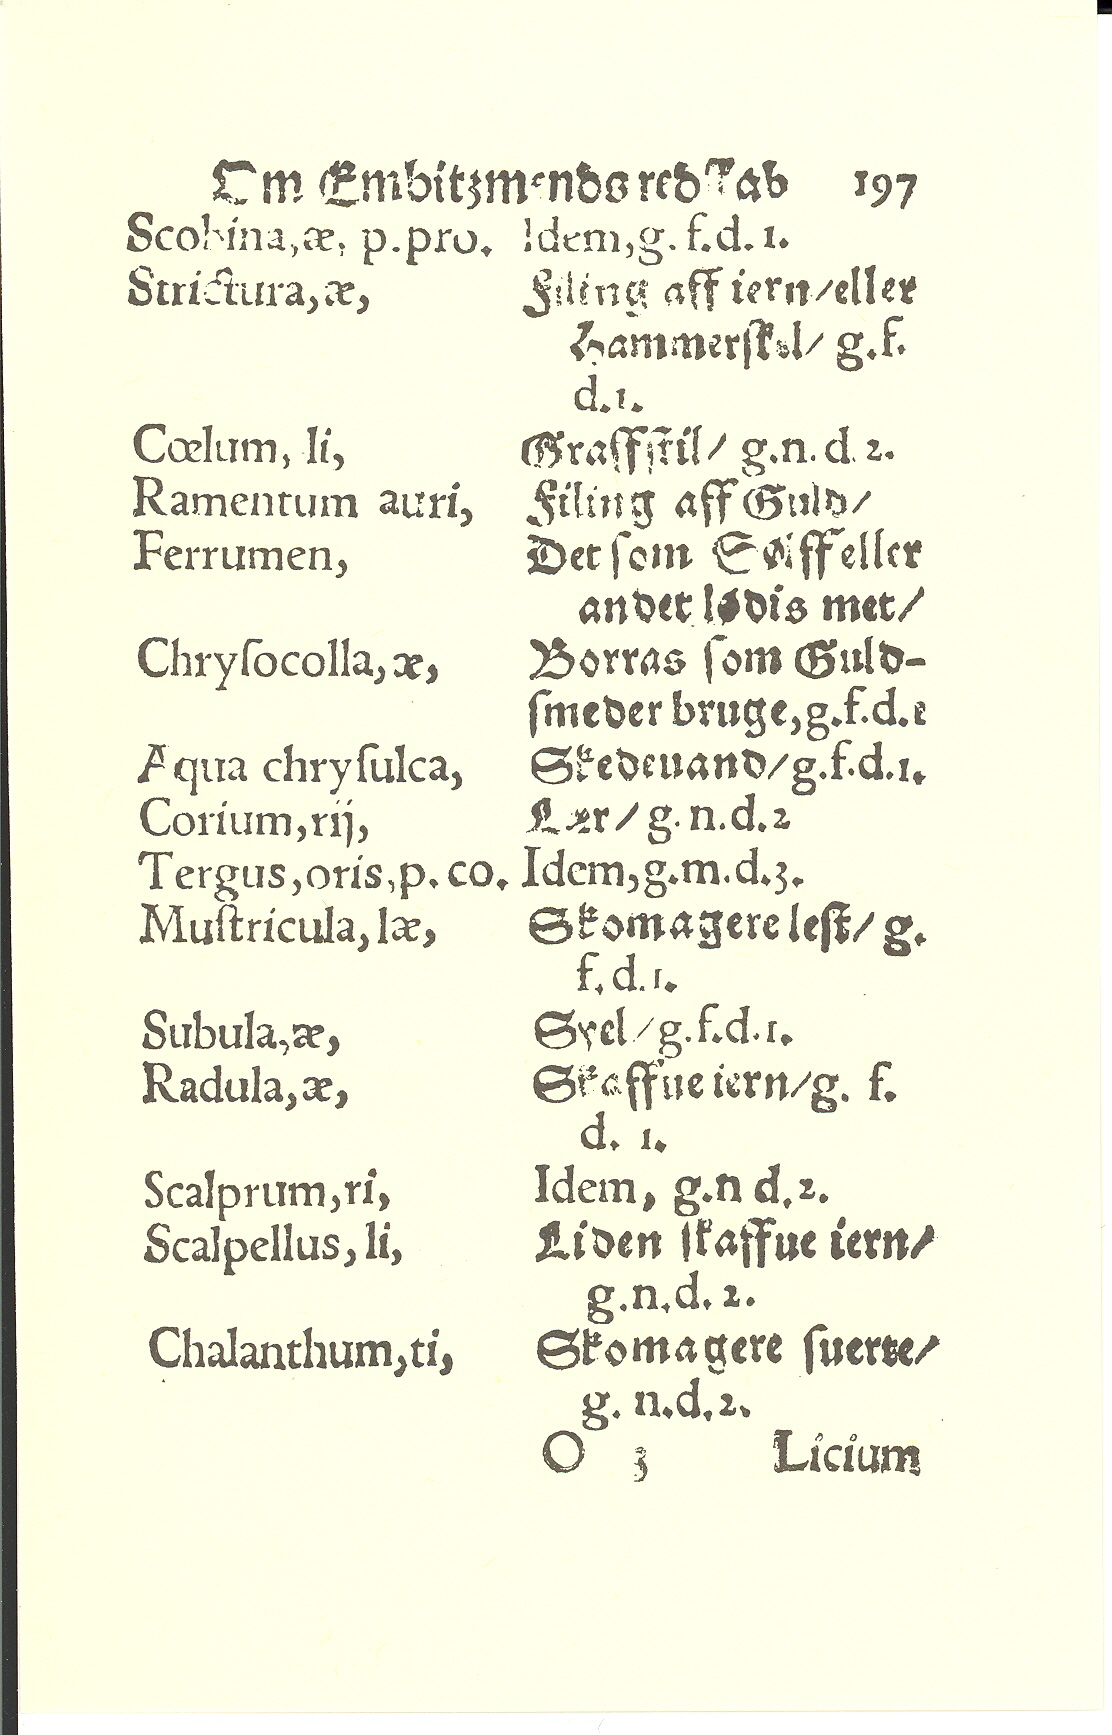 Om Embitzmends redskab 197
Scobina,æ, p.pro. Idem,g.f.d.1.
Strictura,æ, Filing aff iern/eller
Hammerskel/ g.f.
d.1.
Cœlum, li, Graffstil/ g.n.d.2.
Ramentum auri, Filing aff Guld/
Ferrumen, Det som Sølff eller
andet lødis met/
Chryſocolla,æ, Borras ſom Guld-
ſmeder bruge,g.f.d.
Aqua chryſulca, Skedeuand/g.f.d.1.
Corium,rij, Lær/g.n.d.2
Tergus,oris,p.co. Idem,g.m.d.3.
Muſtricula,læ, Skomagere leſt/ g.
f.d.1.
Subula,æ, Syel/g.f.d.1.
Radula,æ, Skaffue iern/g. f.
d. 1.
Scalprum,ri, Idem, g.n d.2.
Scalpellus,li, Liden ſkaffue iern/
g.n.d.2.
Chalanthum,ti, Skomagere ſuerte/
g. n.d.2.
O 3 Licium